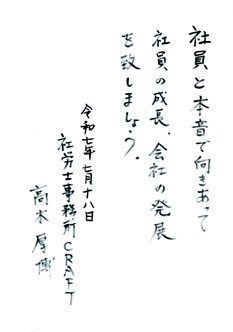 社員と本音で向きあって
社員の成長、会社の発展
を致しましょう。
令和七年七月十八日
社労士事務所CRAFT
高木厚博